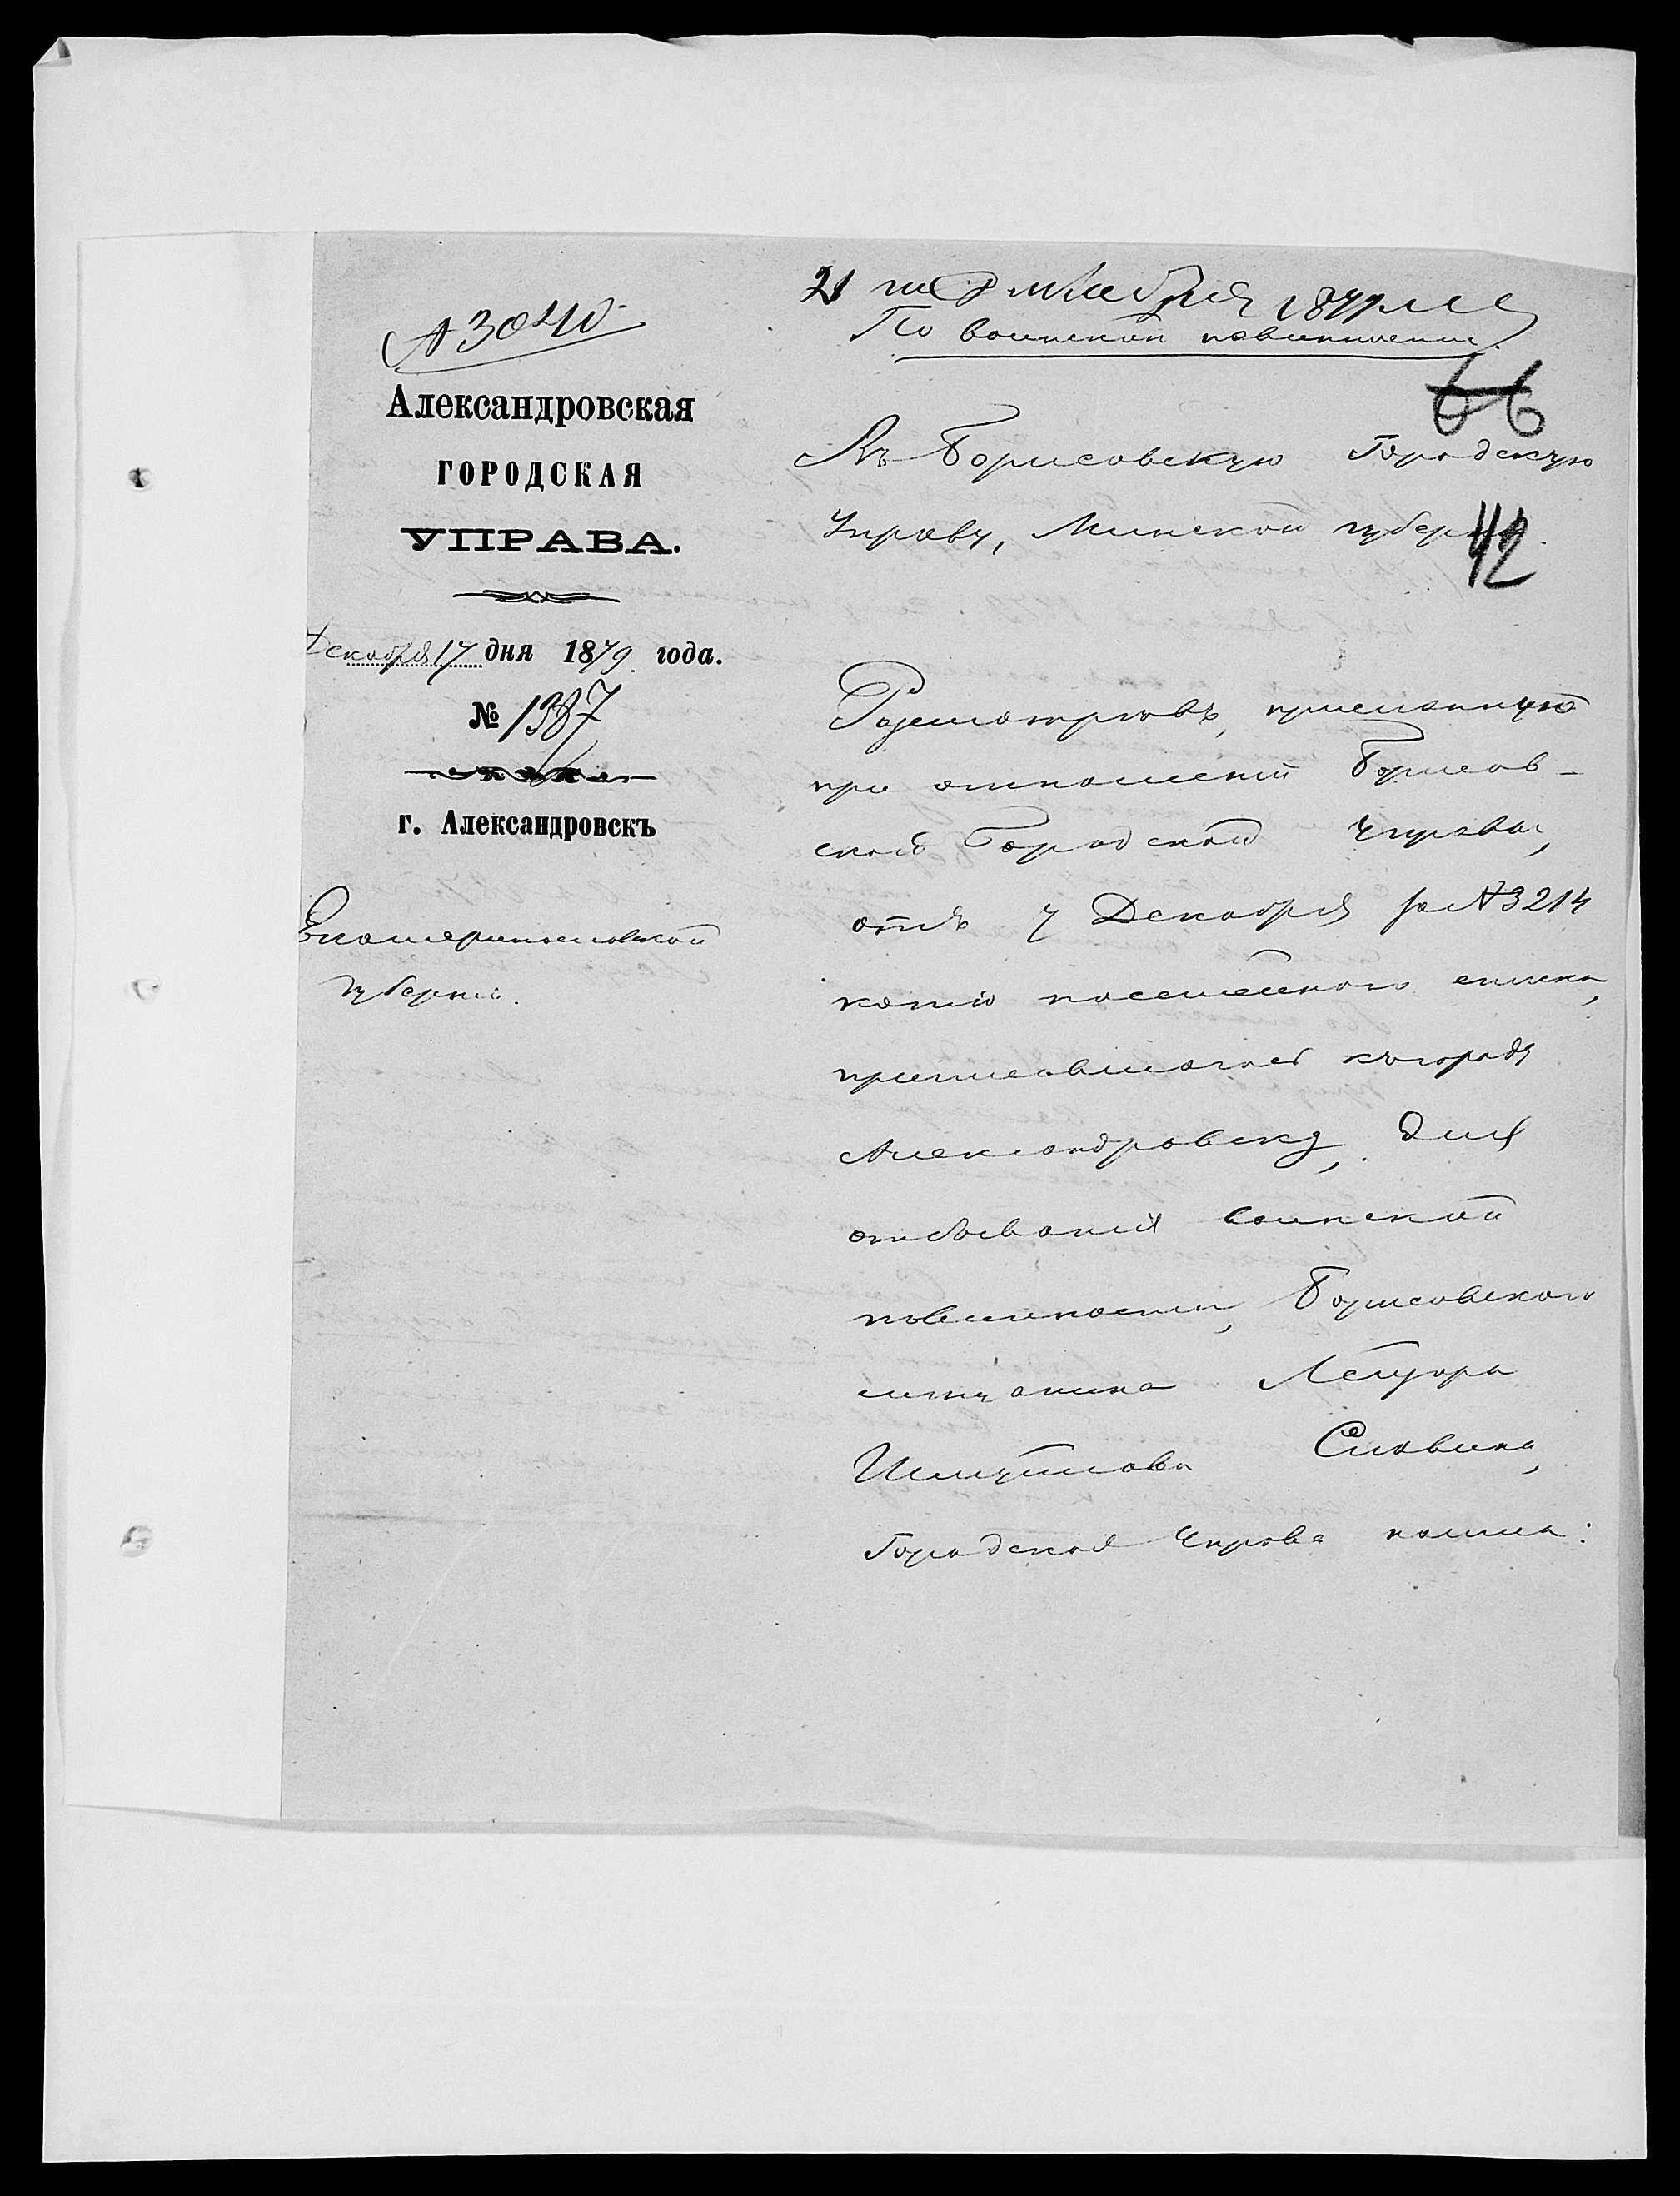 № 3040
Александровская
ГОРОДСКАЯ
УПРАВА.
Декабря 17 дня 1879 года.
№ 1387
г. Александровскъ
Екатеринославской
губерніи.
21 Декабря 1879
По воинской повинности.
66
Въ Борисовскую Городскую
Управу, Минской губерніи.
42
Разсмотрѣвъ, присланную
при отношеніи Борисов-
ской Городской Управы,
отъ 7 Декабря за № 3214
копію посемейнаго списка,
приписавшагося къ городу
Александровску, для
отбыванія воинской
повинности, Борисовскаго
мѣщанина Лейзора
Славина,
Городская Управа нашла: